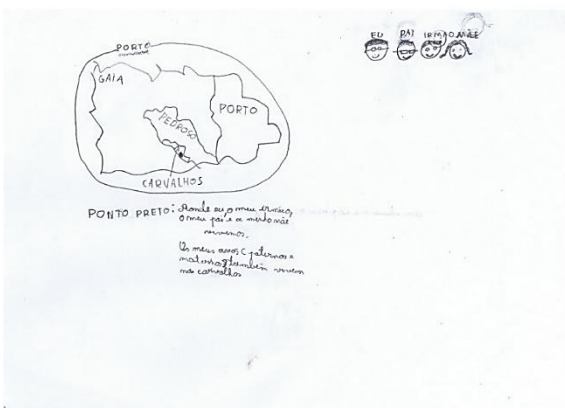 EU PAI IRMÃO MÃE
PORTO
GAIA
PORTO
PEDROSO
CARVALHOS
PONTO PRETO: Aonde eu, o meu irmão,
o meu pai e a minha mãe
vivemos.
Os meus avós (paternos e
maternos) também vivem
nos carvalhos